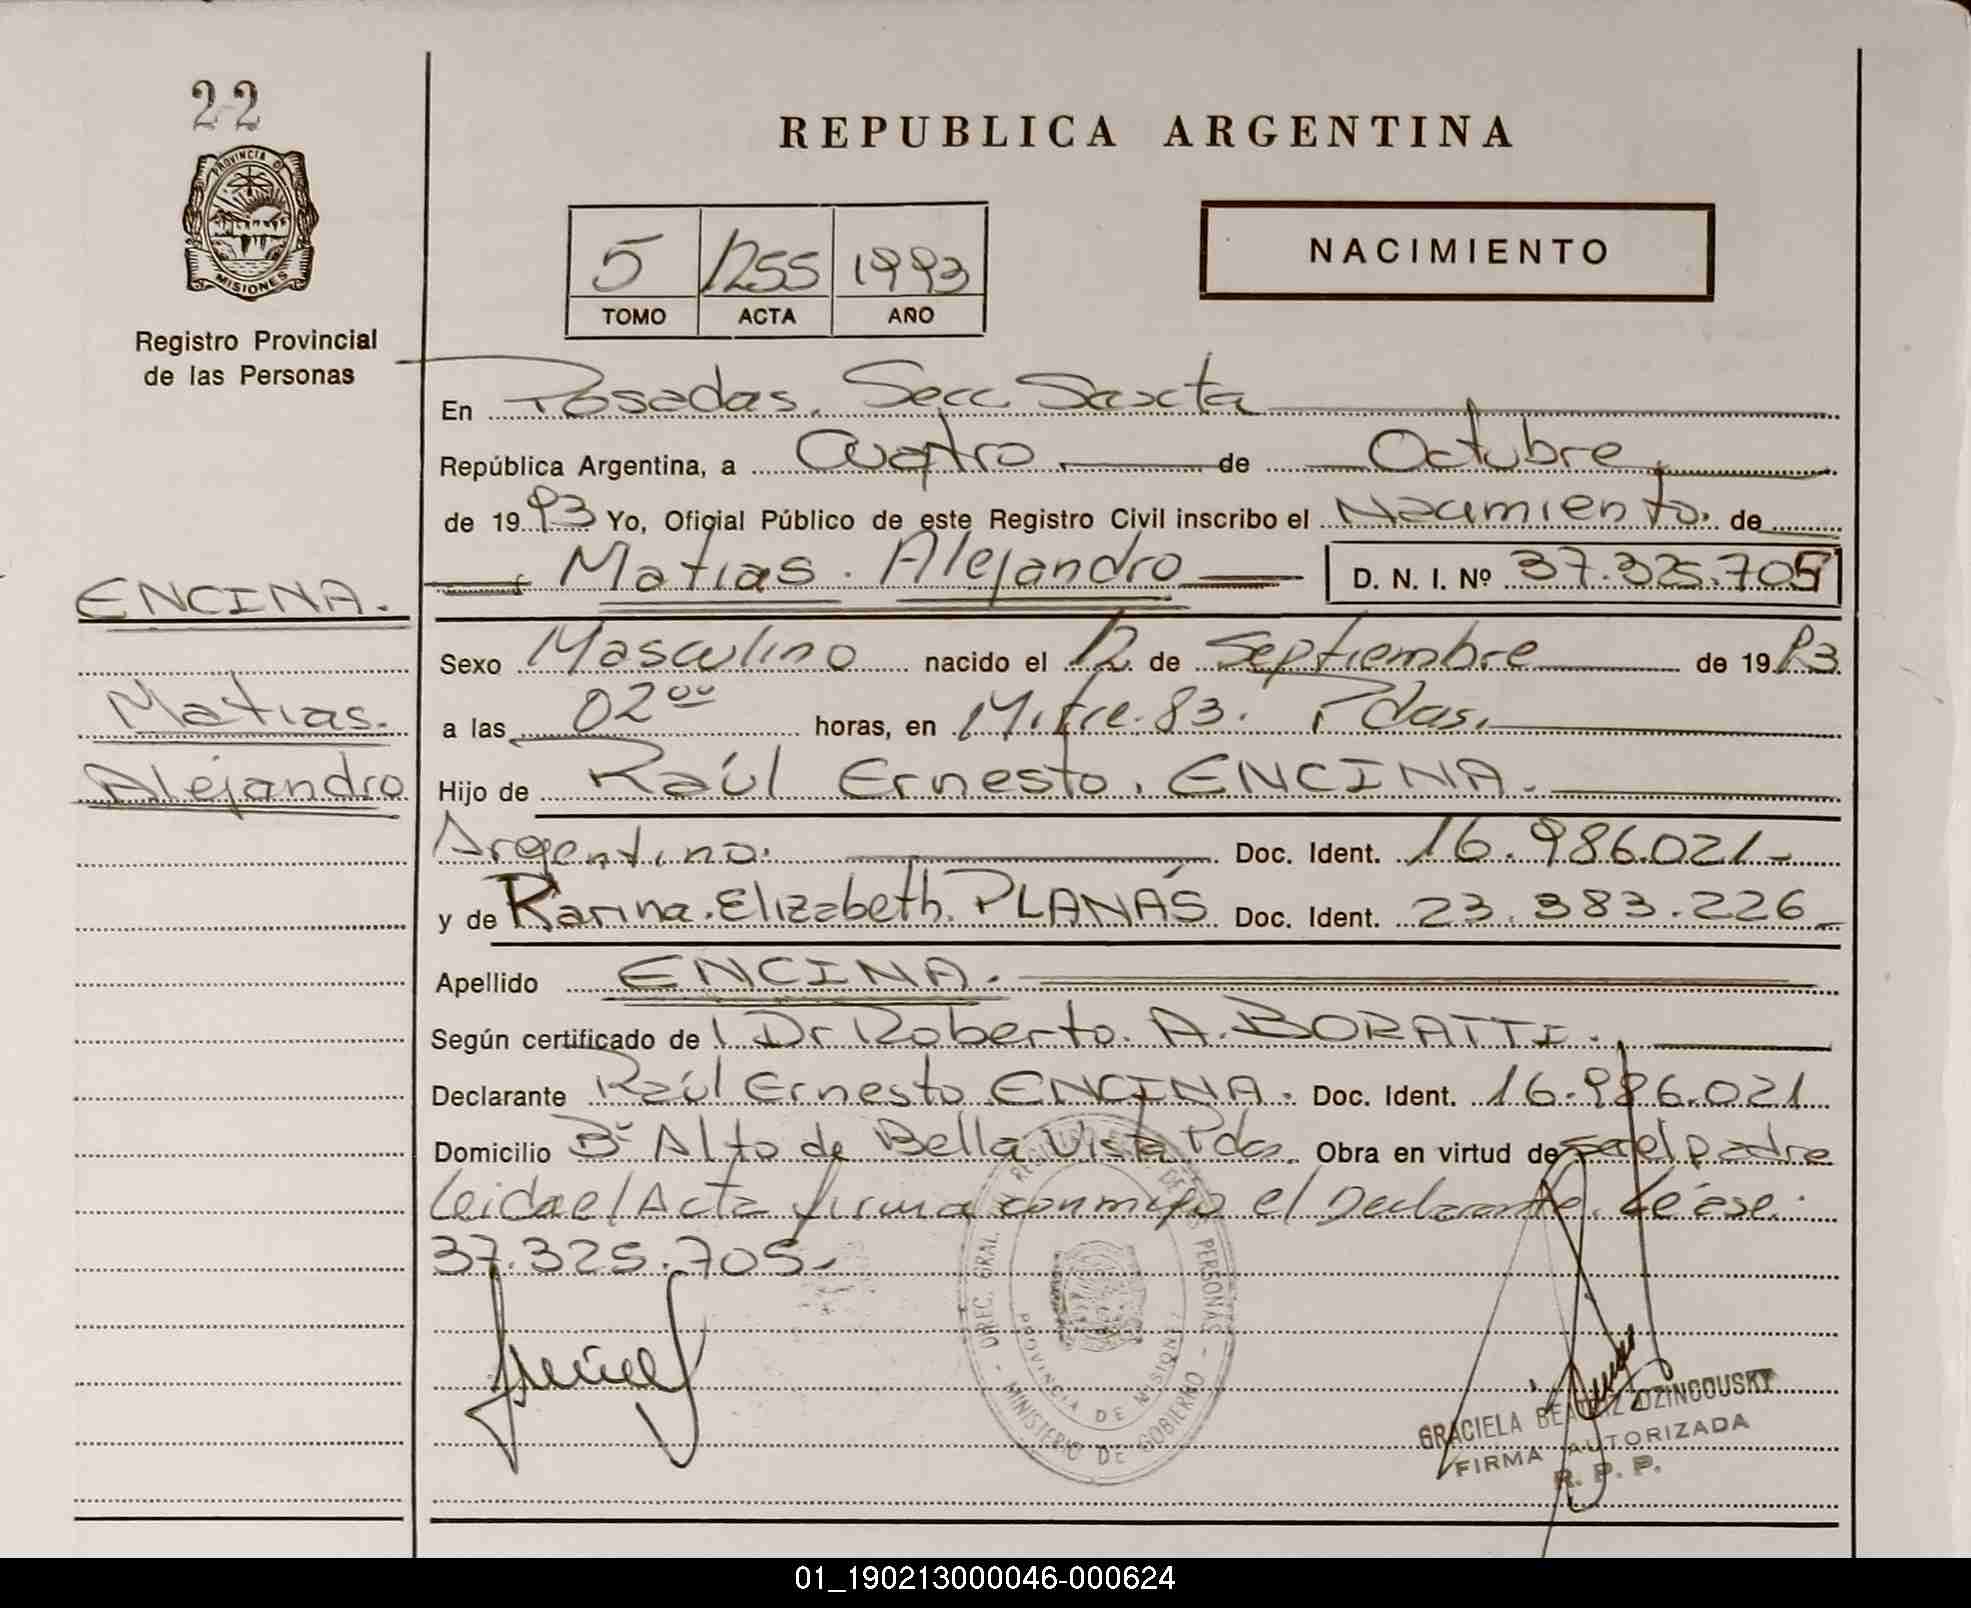 22
PROVINCIA DE
MISIONES
Registro Provincial
de las Personas
REPUBLICA ARGENTINA
5 1255 1993
TOMO ACTA AÑO
NACIMIENTO
En Posadas. Secc Sexta
República Argentina, a Cuatro de Octubre
de 1993 Yo, Oficial Público de este Registro Civil inscribo el Nacimiento. de
Matias. Alejandro D. N. I. Nº 37.325.705
ENCINA.
Matias.
Alejandro
Sexo Masculino nacido el 12 de Septiembre de 1993
a las 02⁰⁰ horas, en Mitre. 83. Pdas.
Hijo de Raúl Ernesto. ENCINA.
Argentino. Doc. Ident. 16.986.021
y de Karina. Elizabeth. PLANÁS Doc. Ident. 23.383.226
Apellido ENCINA.
Según certificado de Dr Roberto. A. BORATTI.
Declarante Raúl Ernesto ENCINA. Doc. Ident. 16.986.021
Domicilio Bº Alto de Bella Vista Pdas. Obra en virtud de ser el padre
Leida el Acta firma conmigo el Declarante. Léase:
37.325.705.
DIREC. GRAL. REGISTRO DE LAS PERSONAS
PROVINCIA DE MISIONES
MINISTERIO DE GOBIERNO
GRACIELA BEATRIZ DZINCOUSKY
FIRMA AUTORIZADA
R. P. P.
01_190213000046-000624